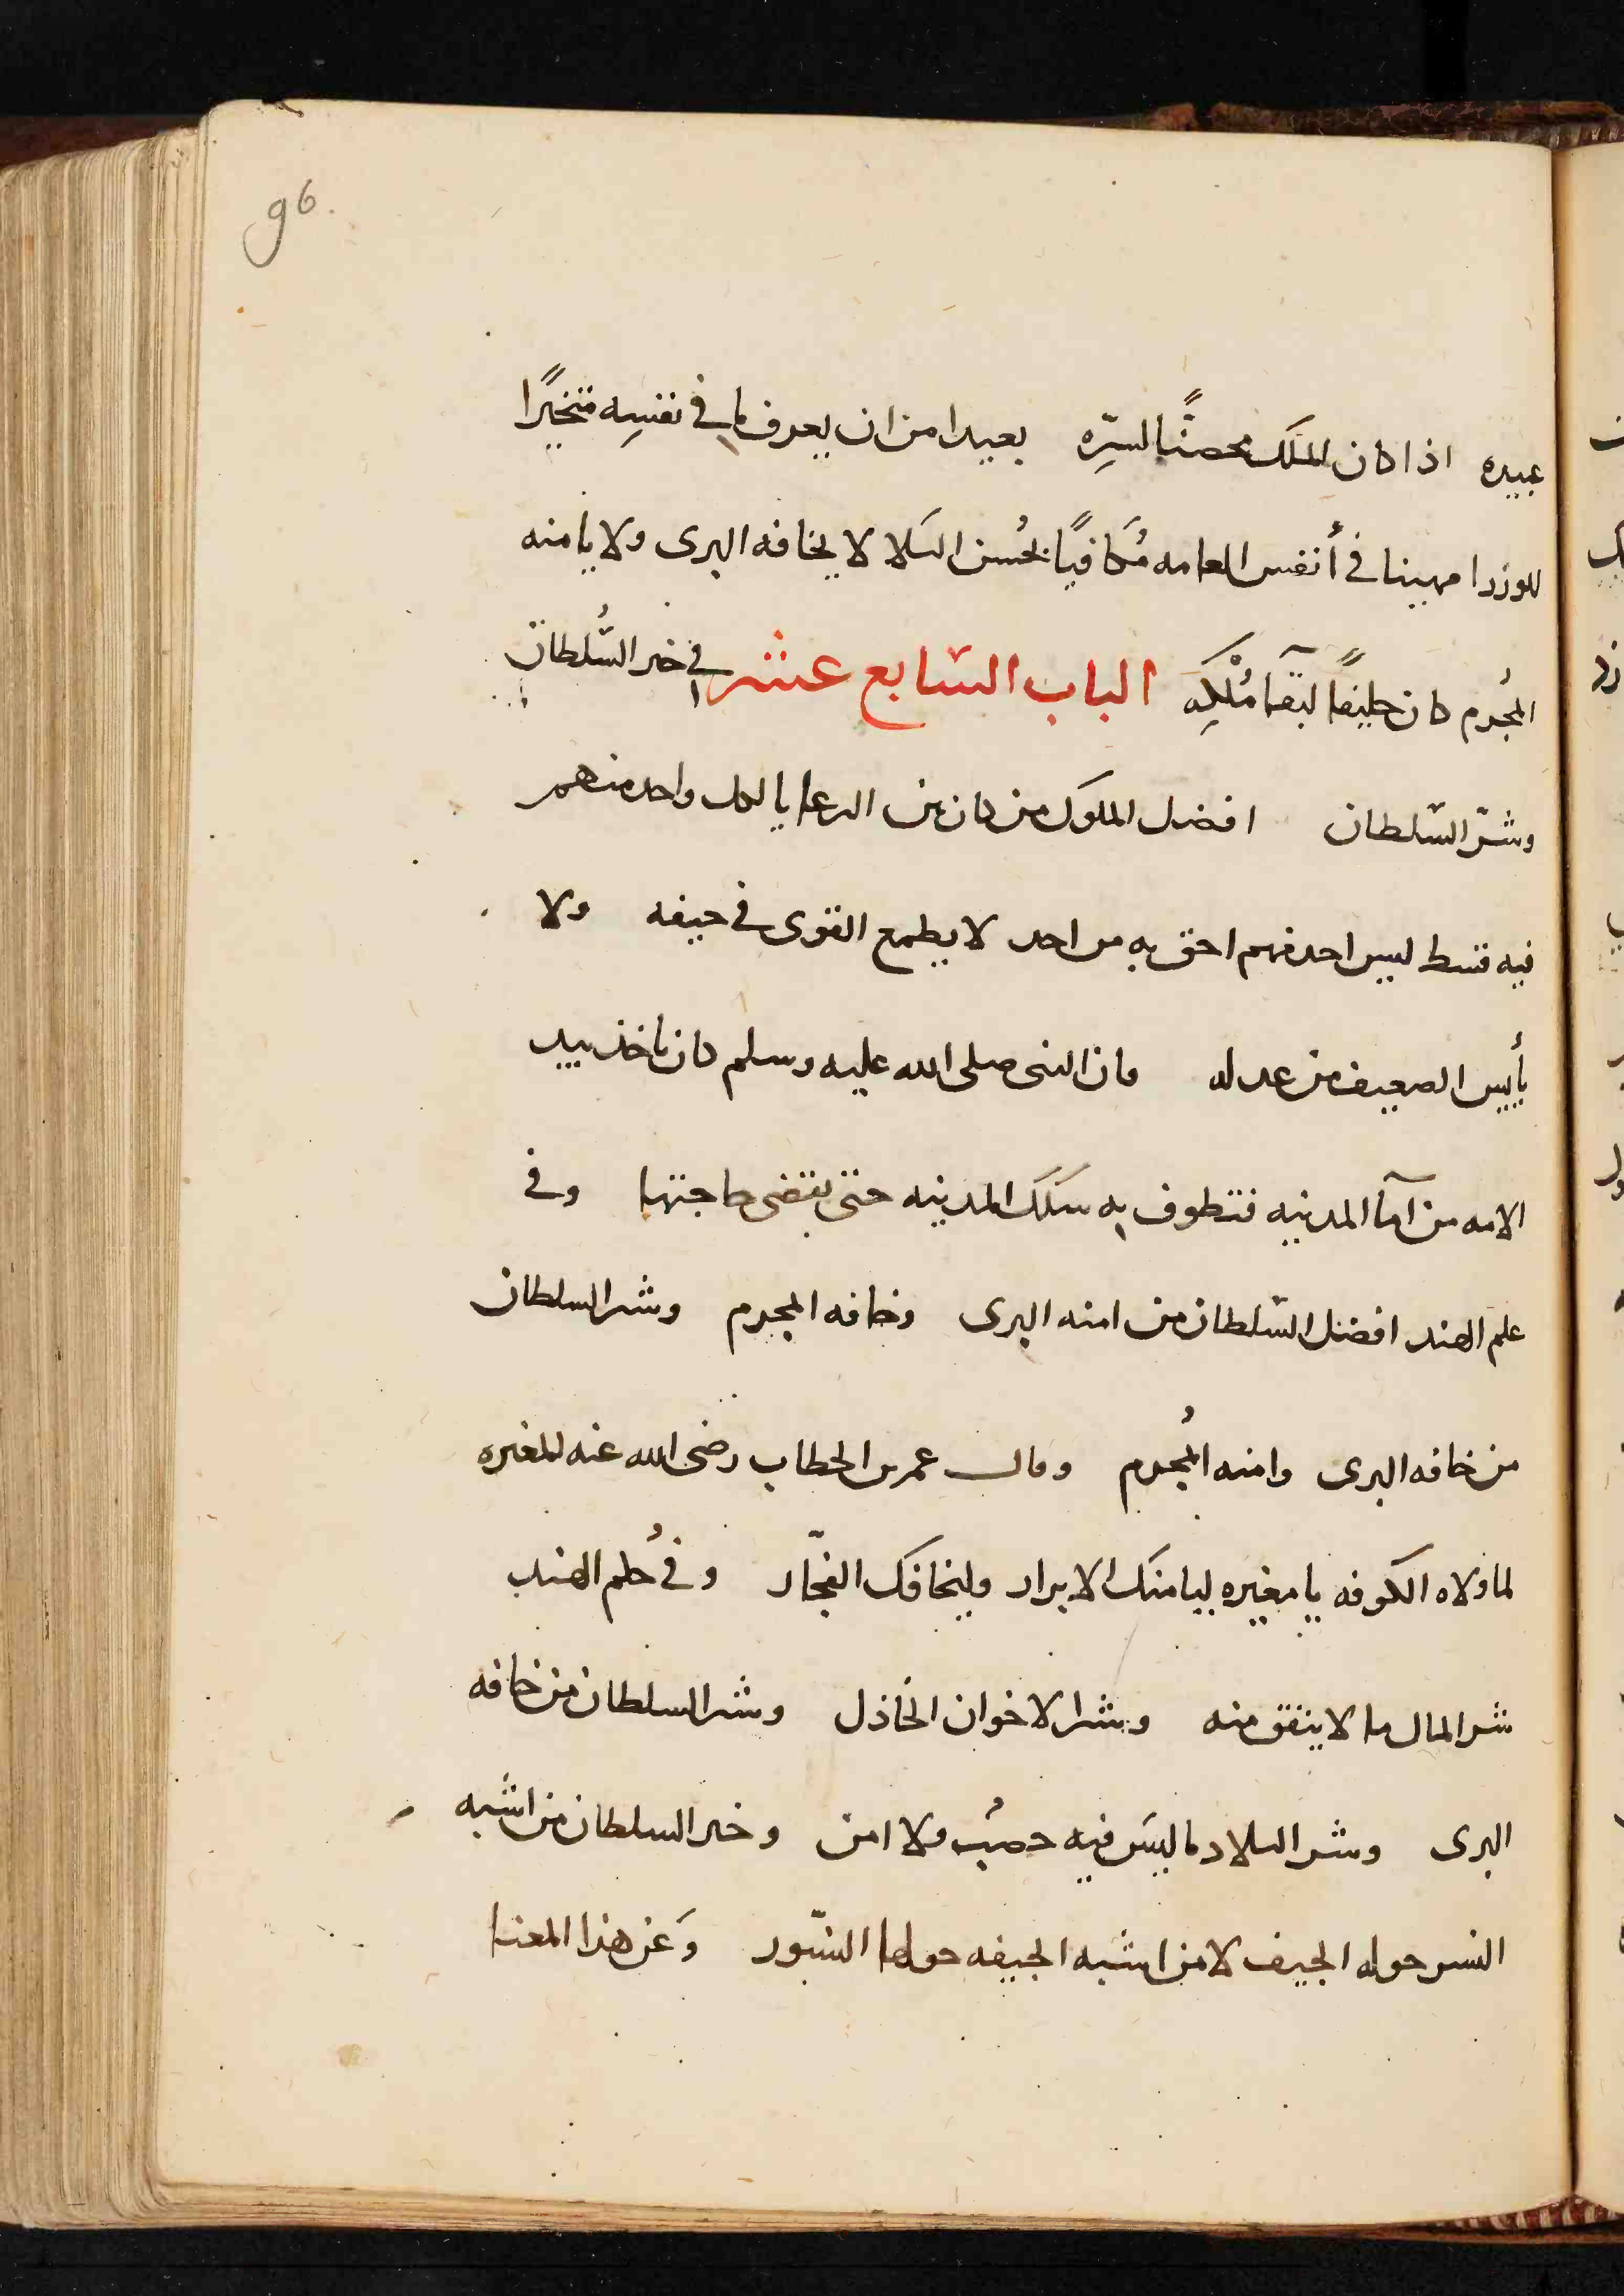 96.
عبيده اذا كان الملك محصنًا لسِرّه بعيدا من ان يعرف ما في نفسِه متخيرًا
للوزرا مهيبنا في أنفس العامه مُكافيًا بحُسن البلا لا يخافه البرى ولا يامنه
المُجرم كان خليقًا لبقآ مُلْكِه الباب السابع عشر في خير السُّلطان
وشرّ السّلطان افضل الملوك من كان بين الرعايا لكل واحد منهم
فيه قسط ليس احد منهم احق به من احد لا يطمع القوى في حيفه ولا
يأيس الضعيف من عدله فان النبى صلى الله عليه وسلم كان تاخذ بيد
الامه من آمآ المدينه فتطوف به سكك المدينه حتى يقضى حاجتها وفي
علم الهند افضل السّلطان من امنه البرى وخافه المجرم وشر السلطان
من خافه البرى وامنه المُجرم وقال عمر بن الخطاب رضى الله عنه للمغيره
لما ولاه الكوفه يا مغيره ليامنك الابرار وليخافك الفجّار وفي حُلم الهند
شر المال ما لا ينفق منه وشر الاخوان الخاذل وشر السلطان من خافه
البرى وشر البلاد ما ليسَ فيه خصبُ ولا امن وخير السلطان من اشبه
النسر حوله الجيف لا من اشبه الجيفه حولها النسّور وَعن هذا المعنا